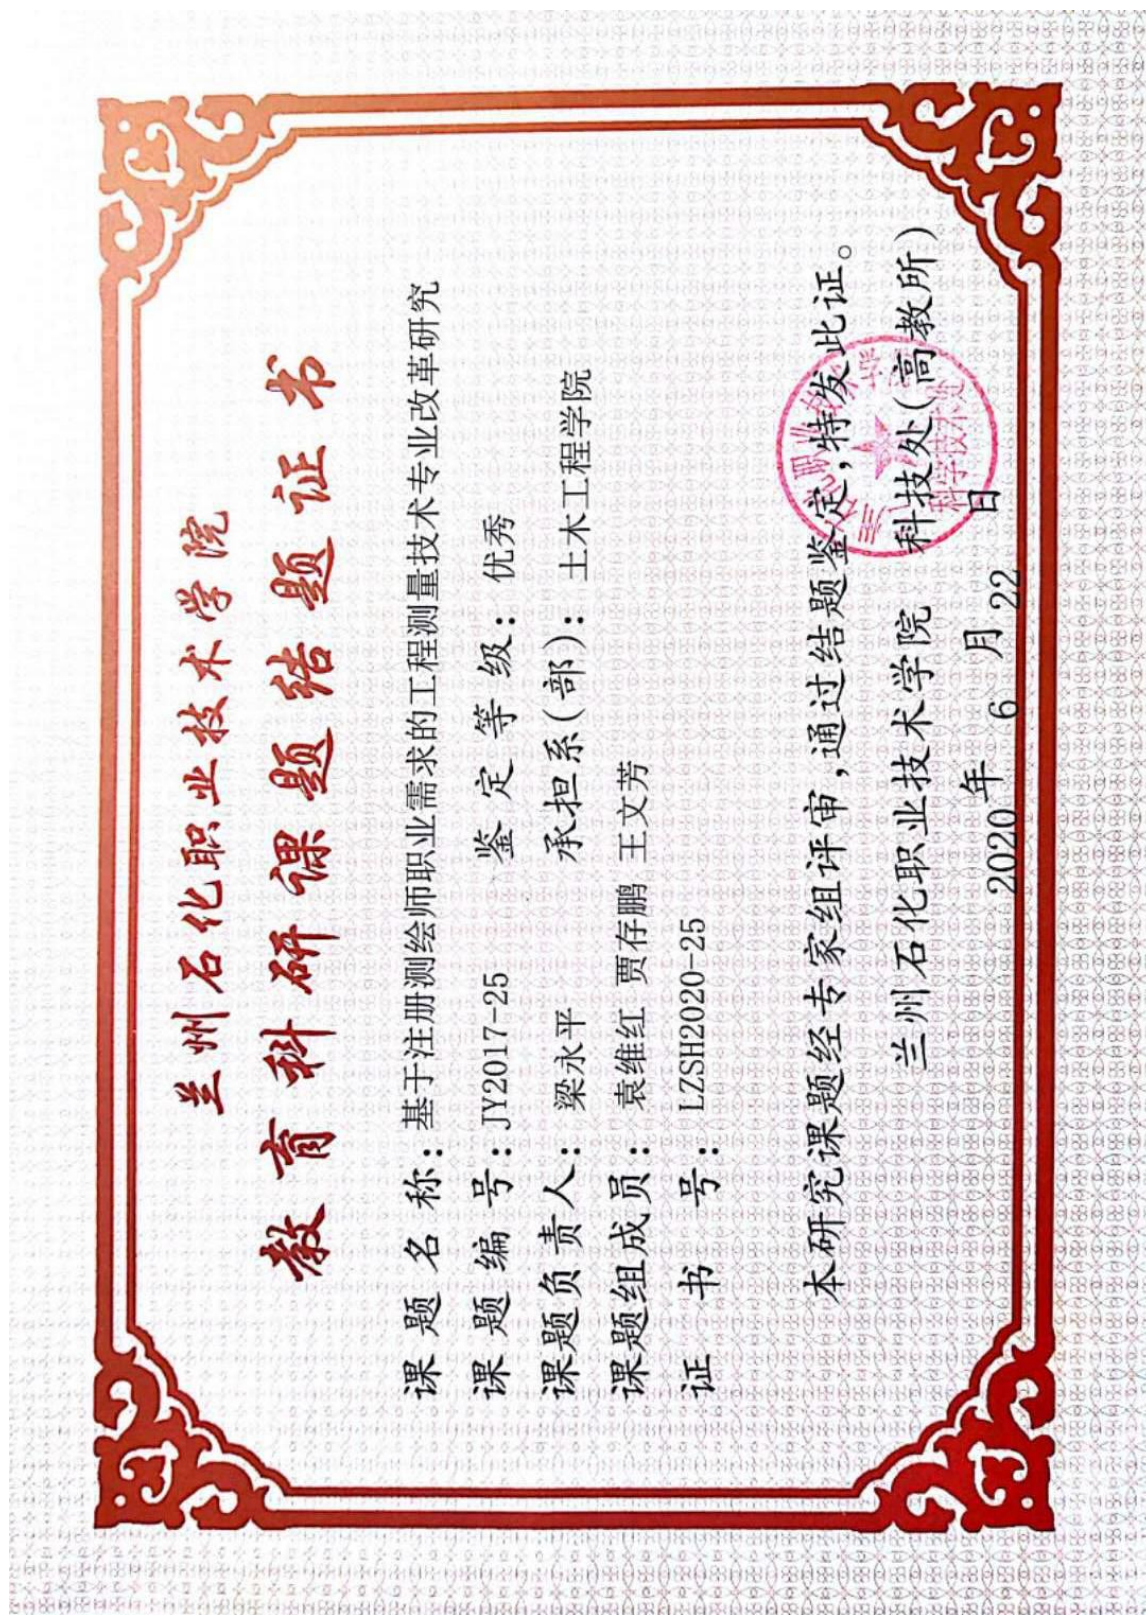 兰州石化职业技术学院
教育科研课题结题证书
课题名称：基于注册测绘师职业需求的工程测量技术专业改革研究
课题编号：JY2017-25 鉴定等级：优秀
课题负责人：梁永平 承担系(部)：土木工程学院
课题组成员：袁维红 贾存鹏 王文芳
证书号：LZSH2020-25
本研究课题经专家组评审,通过结题鉴定,特发此证。
兰州石化职业技术学院 科技处(高教所)
2020年6月22日
科学技术处